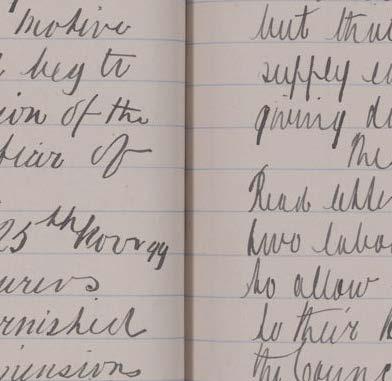 motive
beg to
ion of the
of
25th Novr 99
urers
rnished
mensions
but that
supply
giving
The
Read letter
two labo
to allow
to their
the Coun